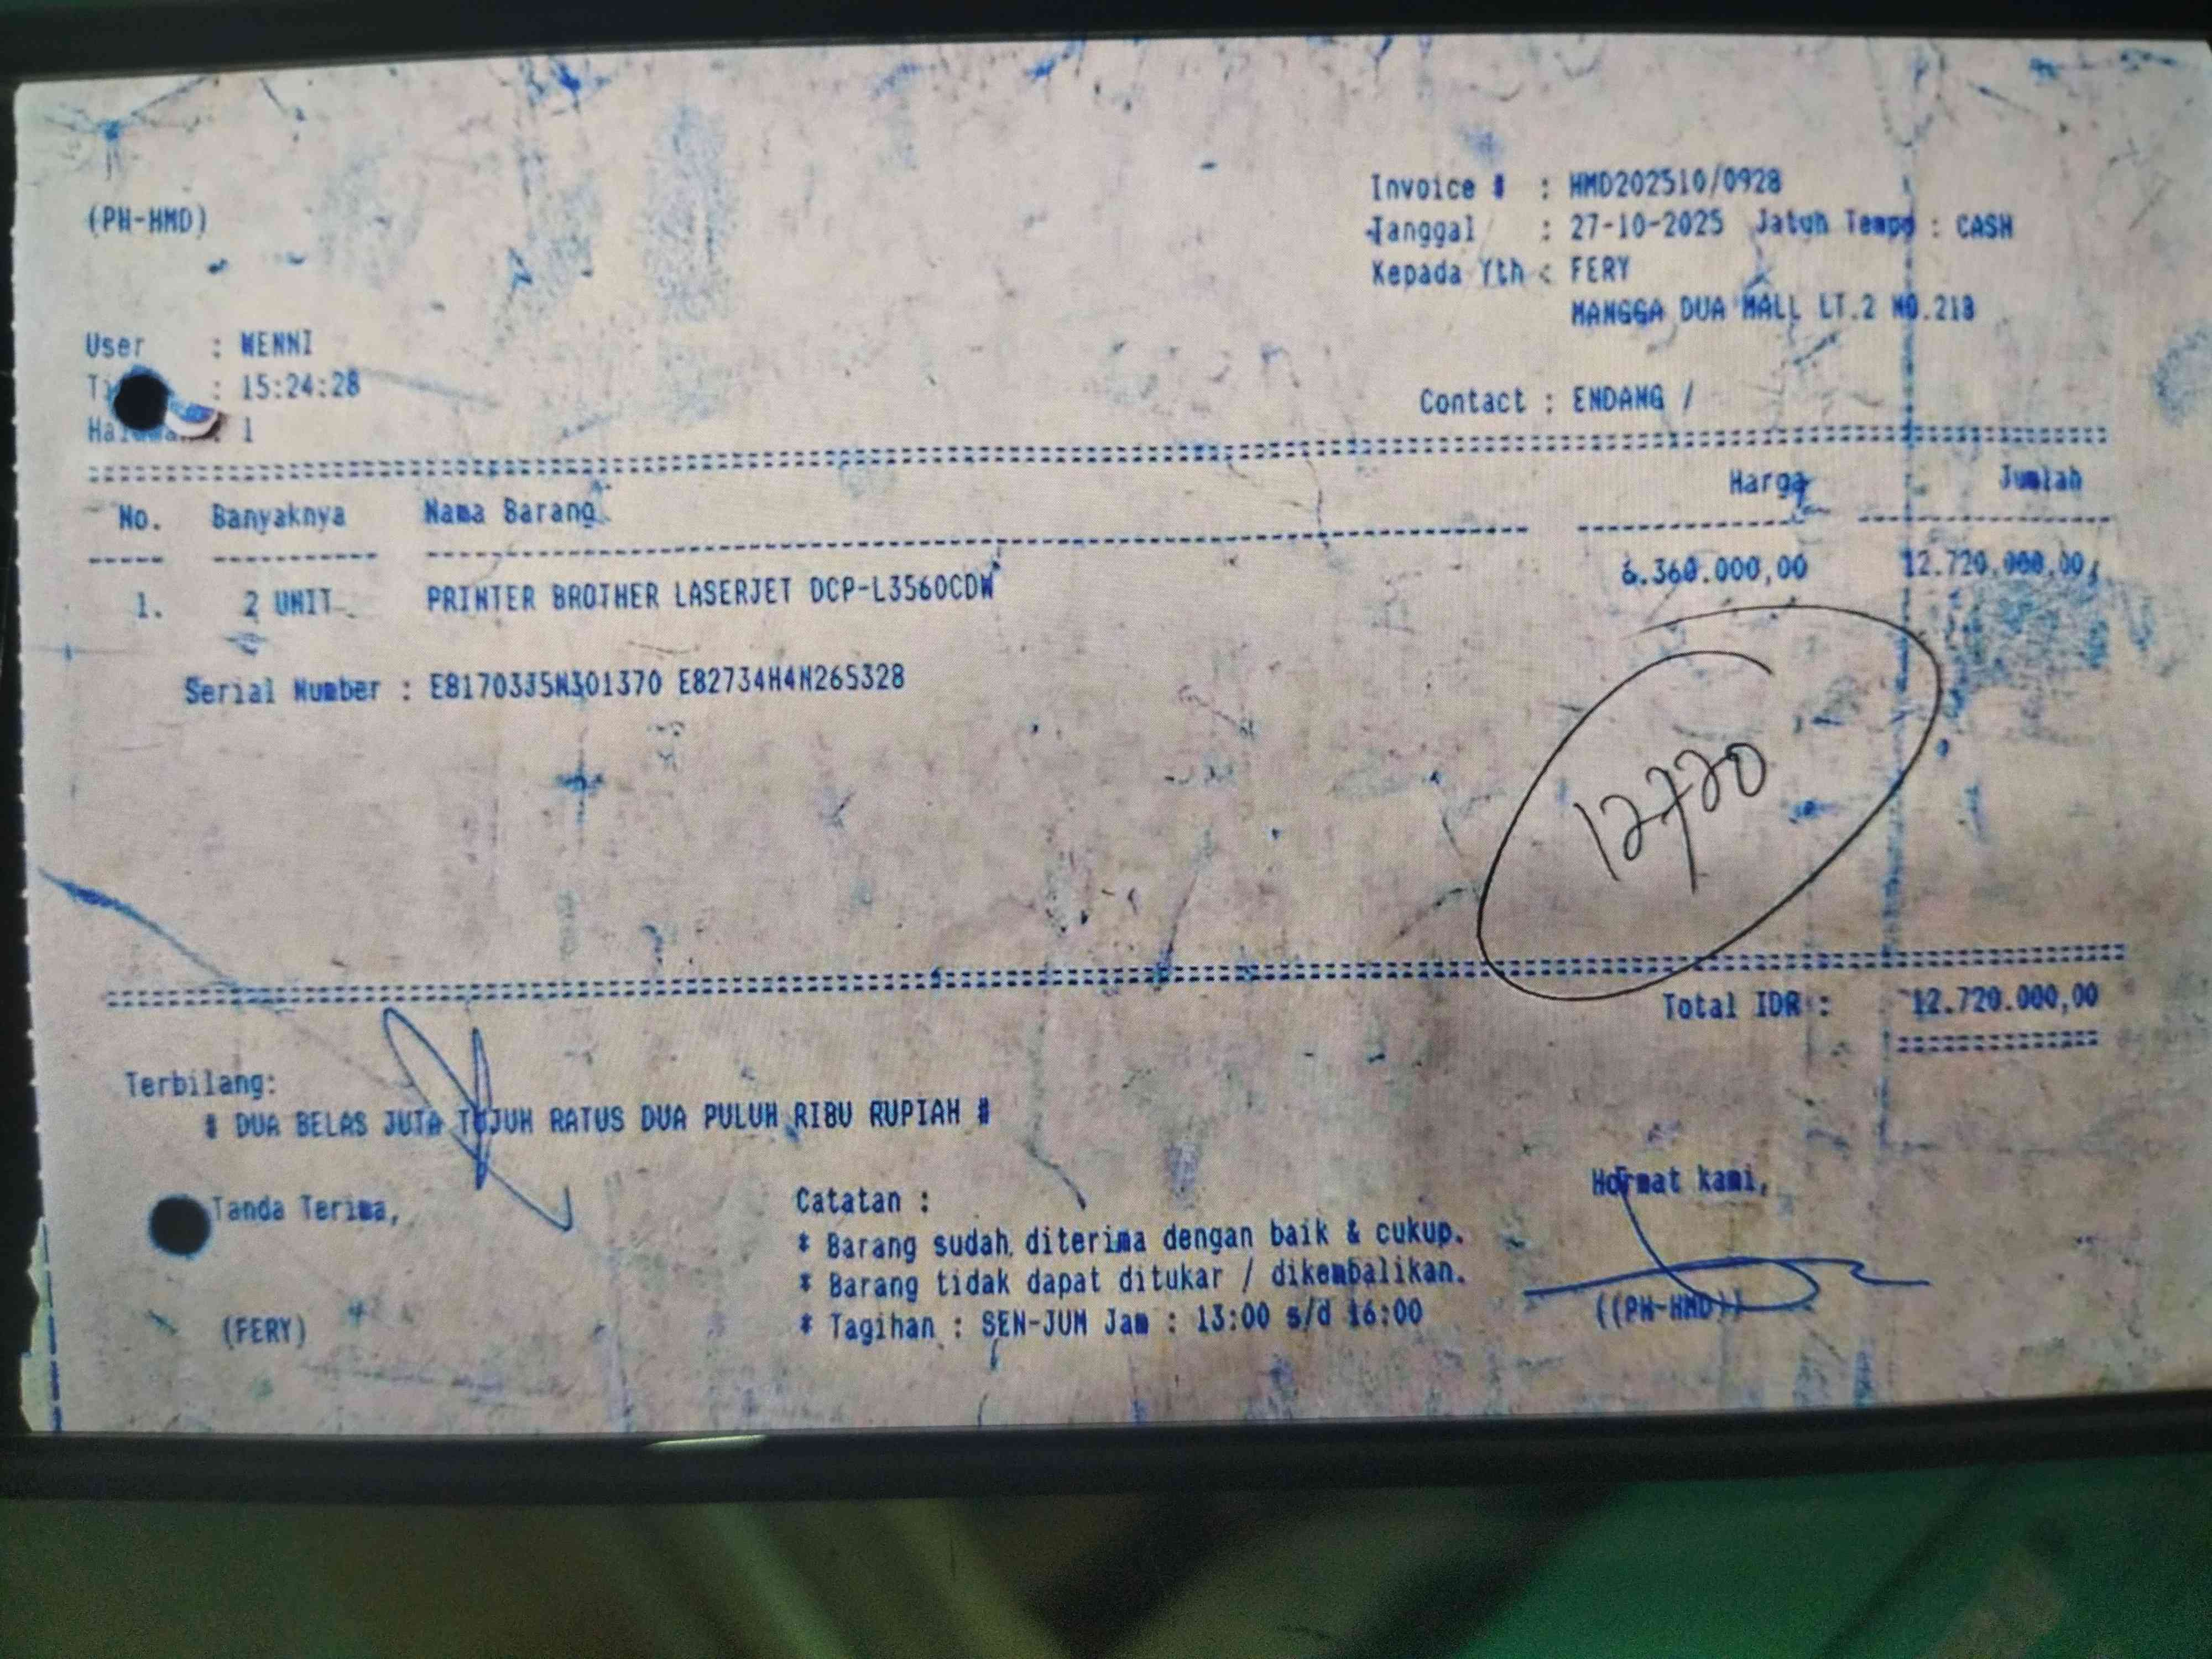 (PH-HMD)
Invoice # : HMD202510/0928
Tanggal : 27-10-2025 Jatuh Tempo : CASH
Kepada Yth : FERY
MANGGA DUA MALL LT.2 NO.218
User : WENNI
: 15:24:28
Halaman : 1
Contact : ENDANG /
No. Banyaknya Nama Barang Harga Jumlah
1. 2 UNIT PRINTER BROTHER LASERJET DCP-L3560CDW 6.360.000,00 12.720.000,00
Serial Number : E82734H4N265328
12720
Total IDR : 12.720.000,00
Terbilang:
# DUA BELAS JUTA TUJUH RATUS DUA PULUH RIBU RUPIAH #
Tanda Terima,
(FERY)
Catatan :
* Barang sudah diterima dengan baik & cukup.
* Barang tidak dapat ditukar / dikembalikan.
* Tagihan : SEN-JUM Jam : 13:00 s/d 16:00
Hormat kami,
((PH-HMD))